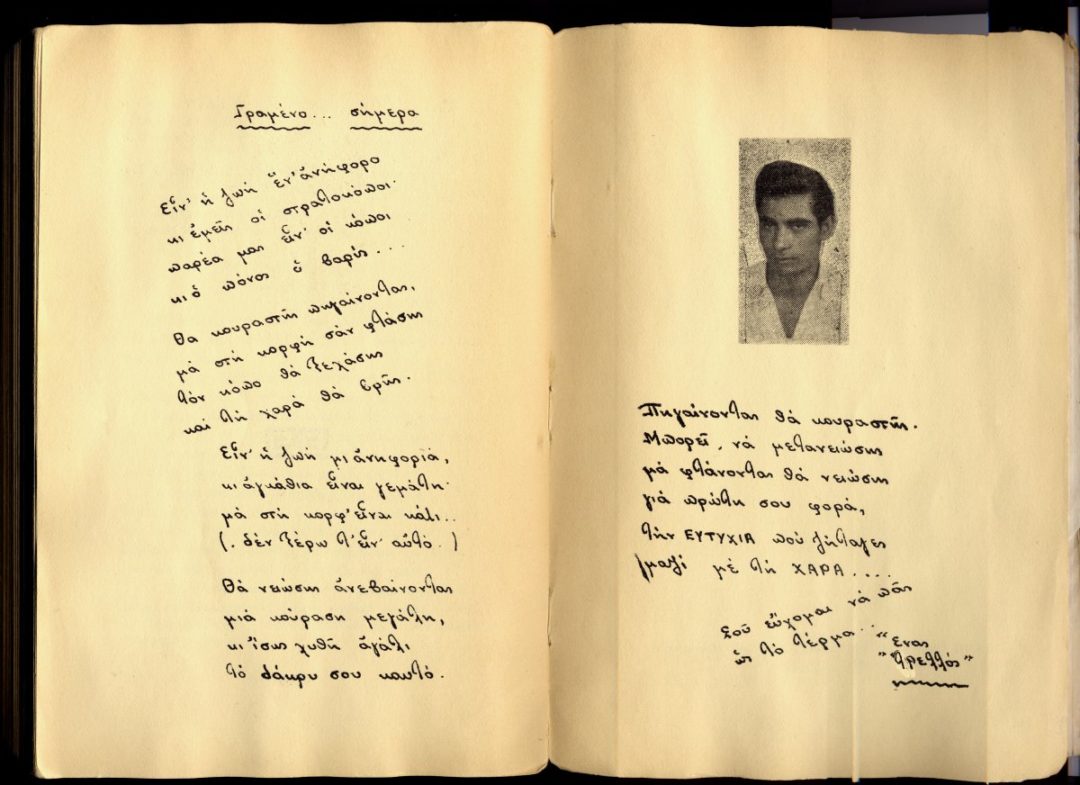 Γραμένο... σήμερα
Εἶν' ἡ ζωή ἕν' ἀνήφορο
κι ἐμεῖς οἱ στρατοκόποι·
παρέα μας εἶν' οἱ κόποι
κι ὁ πόνος ὁ βαρύς...
Θα κουραστῆς πηγαίνοντας,
μά στή κορφή σάν φτάσης
τόν κόπο θά ξεχάσης
καί τή χαρά θά βρῆς.
Εἶν' ἡ ζωή μι ἀνηφοριά,
κι ἀγκάθια εἶναι γεμάτη·
μά στή κορφ' εἶναι κάτι..
(. δέν ξέρω τ' εἶν' αὐτό. )
Θά νειώσης ἀνεβαίνοντας
μιά κούραση μεγάλη,
κι ἴσως χυθῆ ἀγάλι
τό δάκρυ σου καυτό.
Πηγαίνοντας θά κουραστῆς.
Μπορεῖ, νά μετανειώσης
μά φτάνοντας θά νειώσης
γιά πρώτη σου φορά,
τήν ΕΥΤΥΧΙΑ πού ζήταγες
μαζί μέ τή ΧΑΡΑ....
Σοῦ εὔχομαι νά πᾶς
ὥς τό τέρμα...
"Ένας
"Τρελλός"